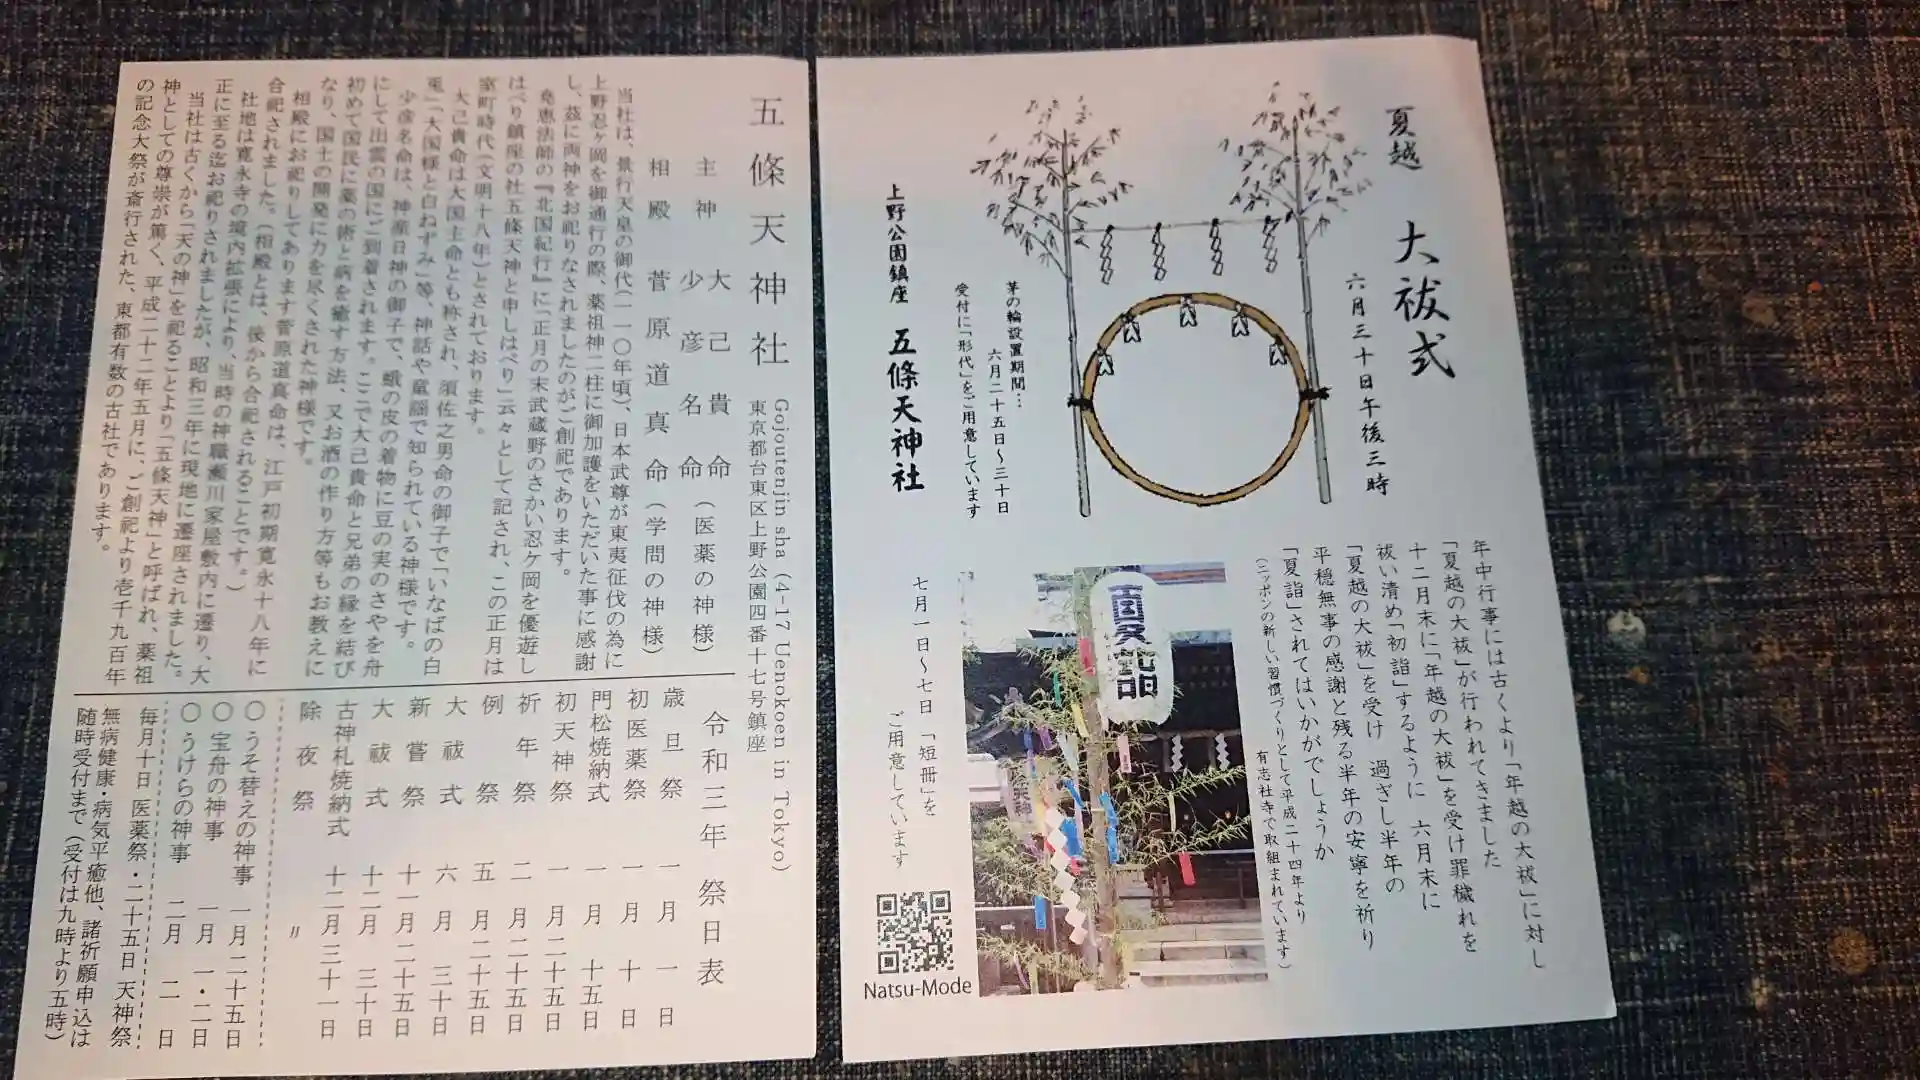 夏越 大祓式
六月三十日午後三時
茅の輪設置期間…
六月二十五日～三十日
受付に「形代」をご用意しています
上野公園鎮座 五條天神社
年中行事には古くより「年越の大祓」に対し
「夏越の大祓」が行われてきました
十二月末に「年越の大祓」を受け罪穢れを
祓い清め「初詣」するように 六月末に
「夏越の大祓」を受け 過ぎし半年の
平穏無事の感謝と残る半年の安寧を祈り
「夏詣」されてはいかがでしょうか
(ニッポンの新しい習慣づくりとして平成二十四年より
有志社寺で取組まれています)
夏詣
七月一日～七日「短冊」を
ご用意しています
Natsu-Mode
五條天神社
Gojoutenjin sha (4-17 Uenokoen in Tokyo)
東京都台東区上野公園四番十七号鎮座
主神 大己貴命
少彦名命 (医薬の神様)
相殿 菅原道真命 (学問の神様)
当社は、景行天皇の御代(一一〇年頃)、日本武尊が東夷征伐の為に
上野忍ヶ岡を御通行の際、薬祖神二柱に御加護をいただいた事に感謝
し、茲に両神をお祀りなされましたのがご創祀であります。
堯恵法師の『北国紀行』に「正月の末武蔵野のさかい忍ケ岡を優遊し
はべり鎮座の社五條天神と申しはべり」云々として記され、この正月は
室町時代(文明十八年)とされております。
大己貴命は大国主命とも称され、須佐之男命の御子で「いなばの白
兎」「大国様と白ねずみ」等、神話や童謡で知られている神様です。
少彦名命は、神産日神の御子で、蛾の皮の着物に豆の実のさやを舟
にして出雲の国にご到着されます。ここで大己貴命と兄弟の縁を結び
初めて国民に薬の術と病を癒す方法、又お酒の作り方等もお教えに
なり、国土の開発に力を尽くされた神様です。
相殿にお祀りしてあります菅原道真命は、江戸初期寛永十八年に
合祀されました。(相殿とは、後から合祀されることです。)
社地は寛永寺の境内拡張により、当時の神職瀬川家屋敷内に遷り、大
正に至る迄お祀りされましたが、昭和三年に現地に遷座されました。
当社は古くから「天の神」を祀ることより「五條天神」と呼ばれ、薬祖
神としての尊崇が篤く、平成二十二年五月に、ご創祀より壱千九百年
の記念大祭が斎行された、東都有数の古社であります。
令和三年 祭日表
歳旦祭 一月一日
初医薬祭 一月十日
門松焼納式 一月十五日
初天神祭 一月二十五日
祈年祭 二月二十五日
例祭 五月二十五日
大祓式 六月三十日
新嘗祭 十一月二十五日
大祓式 十二月三十日
古神札焼納式 十二月三十一日
除夜祭 〃
○うそ替えの神事 一月二十五日
○宝舟の神事 一月一・二日
○うけらの神事 二月二日
毎月十日 医薬祭・二十五日 天神祭
無病健康・病気平癒他、諸祈願申込は
随時受付まで(受付は九時より五時)